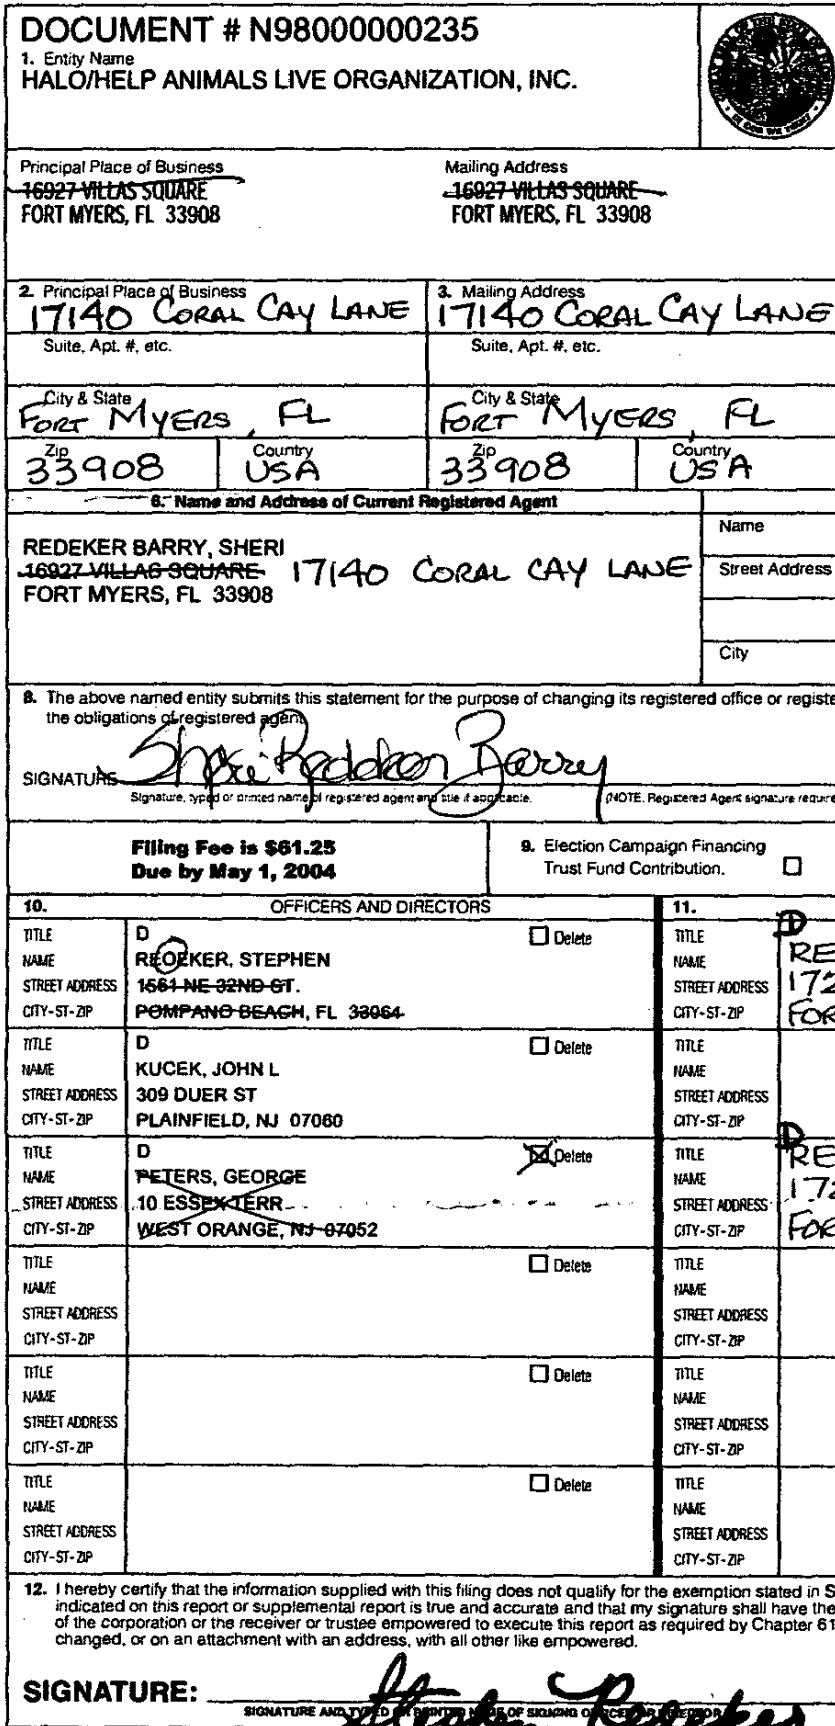 DOCUMENT # N98000000235
1. Entity Name
HALO/HELP ANIMALS LIVE ORGANIZATION, INC.
Principal Place of Business
16927 VILLAS SQUARE
FORT MYERS, FL 33908
Mailing Address
16927 VILLAS SQUARE
FORT MYERS, FL 33908
2. Principal Place of Business
17140 CORAL CAY LANE
3. Mailing Address
17140 CORAL CAY LANE
Suite, Apt. #, etc.
Suite, Apt. #, etc.
City & State
FORT MYERS, FL
City & State
FORT MYERS, FL
Zip
33908
Country
USA
Zip
33908
Country
USA
6. Name and Address of Current Registered Agent
REDEKER BARRY, SHERI
16927 VILLAS SQUARE 17140 CORAL CAY LANE
FORT MYERS, FL 33908
Name
Street Address
City
8. The above named entity submits this statement for the purpose of changing its registered office or registe
the obligations of registered agent
SIGNATURE Sheri Redeker Barry
Signature, typed or printed name of registered agent and title if applicable. (NOTE. Registered Agent signature require
Filing Fee is $61.25
Due by May 1, 2004
9. Election Campaign Financing
Trust Fund Contribution.
10. OFFICERS AND DIRECTORS
TITLE D Delete
NAME REOEKER, STEPHEN
STREET ADDRESS 1561 NE 32ND ST.
CITY-ST-ZIP POMPANO BEACH, FL 33064
TITLE D Delete
NAME KUCEK, JOHN L
STREET ADDRESS 309 DUER ST
CITY-ST-ZIP PLAINFIELD, NJ 07060
TITLE D Delete
NAME PETERS, GEORGE
STREET ADDRESS 10 ESSEX TERR
CITY-ST-ZIP WEST ORANGE, NJ 07052
TITLE Delete
NAME
STREET ADDRESS
CITY-ST-ZIP
TITLE Delete
NAME
STREET ADDRESS
CITY-ST-ZIP
TITLE Delete
NAME
STREET ADDRESS
CITY-ST-ZIP
11.
TITLE D
NAME RE
STREET ADDRESS 172
CITY-ST-ZIP FOR
TITLE
NAME
STREET ADDRESS
CITY-ST-ZIP
TITLE D
NAME RE
STREET ADDRESS 172
CITY-ST-ZIP FOR
TITLE
NAME
STREET ADDRESS
CITY-ST-ZIP
TITLE
NAME
STREET ADDRESS
CITY-ST-ZIP
TITLE
NAME
STREET ADDRESS
CITY-ST-ZIP
12. I hereby certify that the information supplied with this filing does not qualify for the exemption stated in S
indicated on this report or supplemental report is true and accurate and that my signature shall have the
of the corporation or the receiver or trustee empowered to execute this report as required by Chapter 61
changed, or on an attachment with an address, with all other like empowered.
SIGNATURE: Stephen Redeker
SIGNATURE AND TYPED OR PRINTED NAME OF SIGNING OFFICER OR DIRECTOR